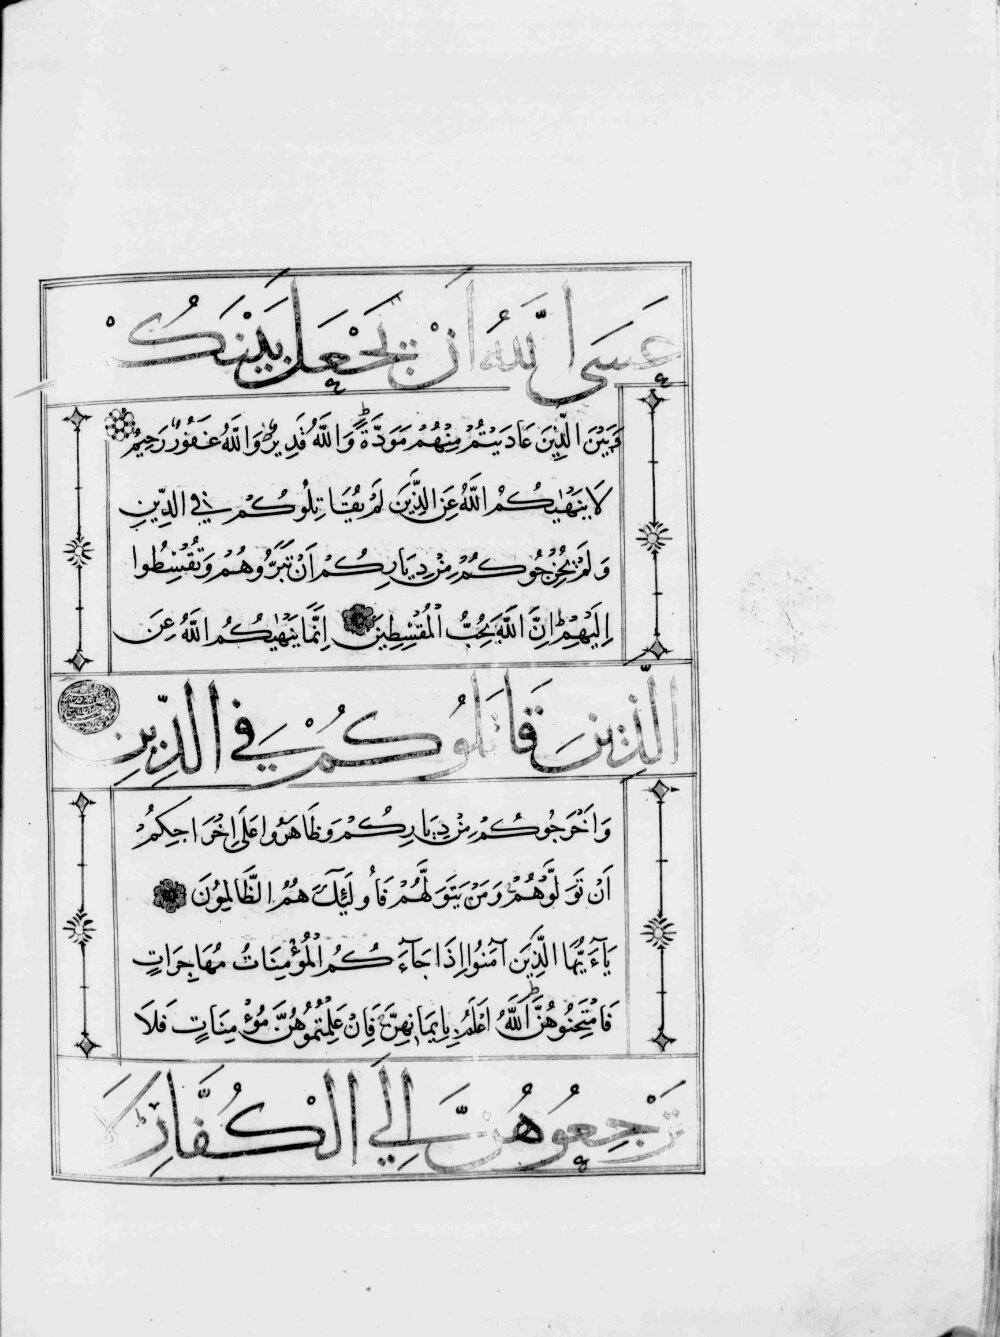 عَسَى اللَّهُ أَنْ يَجْعَلَ بَيْنَكُمْ
وَبَيْنَ الَّذِينَ عَادَيْتُمْ مِنْهُمْ مَوَدَّةً ۖ وَاللَّهُ قَدِيرٌ ۖ وَاللَّهُ غَفُورٌ رَحِيمٌ
لَا يَنْهٰيكُمُ اللَّهُ عَنِ الَّذِينَ لَمْ يُقَاتِلُوكُمْ فِي الدِّينِ
وَلَمْ يُخْرِجُوكُمْ مِنْ دِيَارِكُمْ أَنْ تَبَرُّوهُمْ وَتُقْسِطُوا
إِلَيْهِمْ ۖ إِنَّ اللَّهَ يُحِبُّ الْمُقْسِطِينَ إِنَّمَا يَنْهٰيكُمُ اللَّهُ عَنِ
الَّذِينَ قَاتَلُوكُمْ فِي الدِّينِ
وَأَخْرَجُوكُمْ مِنْ دِيَارِكُمْ وَظَاهَرُوا عَلَى إِخْرَاجِكُمْ
أَنْ تَوَلَّوْهُمْ ۚ وَمَنْ يَتَوَلَّهُمْ فَأُولَئِكَ هُمُ الظَّالِمُونَ
يَآءَيُّهَا الَّذِينَ آمَنُوا إِذَا جَآءَكُمُ الْمُؤْمِنَاتُ مُهَاجِرَاتٍ
فَامْتَحِنُوهُنَّ ۖ اللَّهُ أَعْلَمُ بِإِيمَانِهِنَّ ۚ فَإِنْ عَلِمْتُمُوهُنَّ مُؤْمِنَاتٍ فَلَا
تَرْجِعُوهُنَّ إِلَى الْكُفَّارِ ۖ لَا